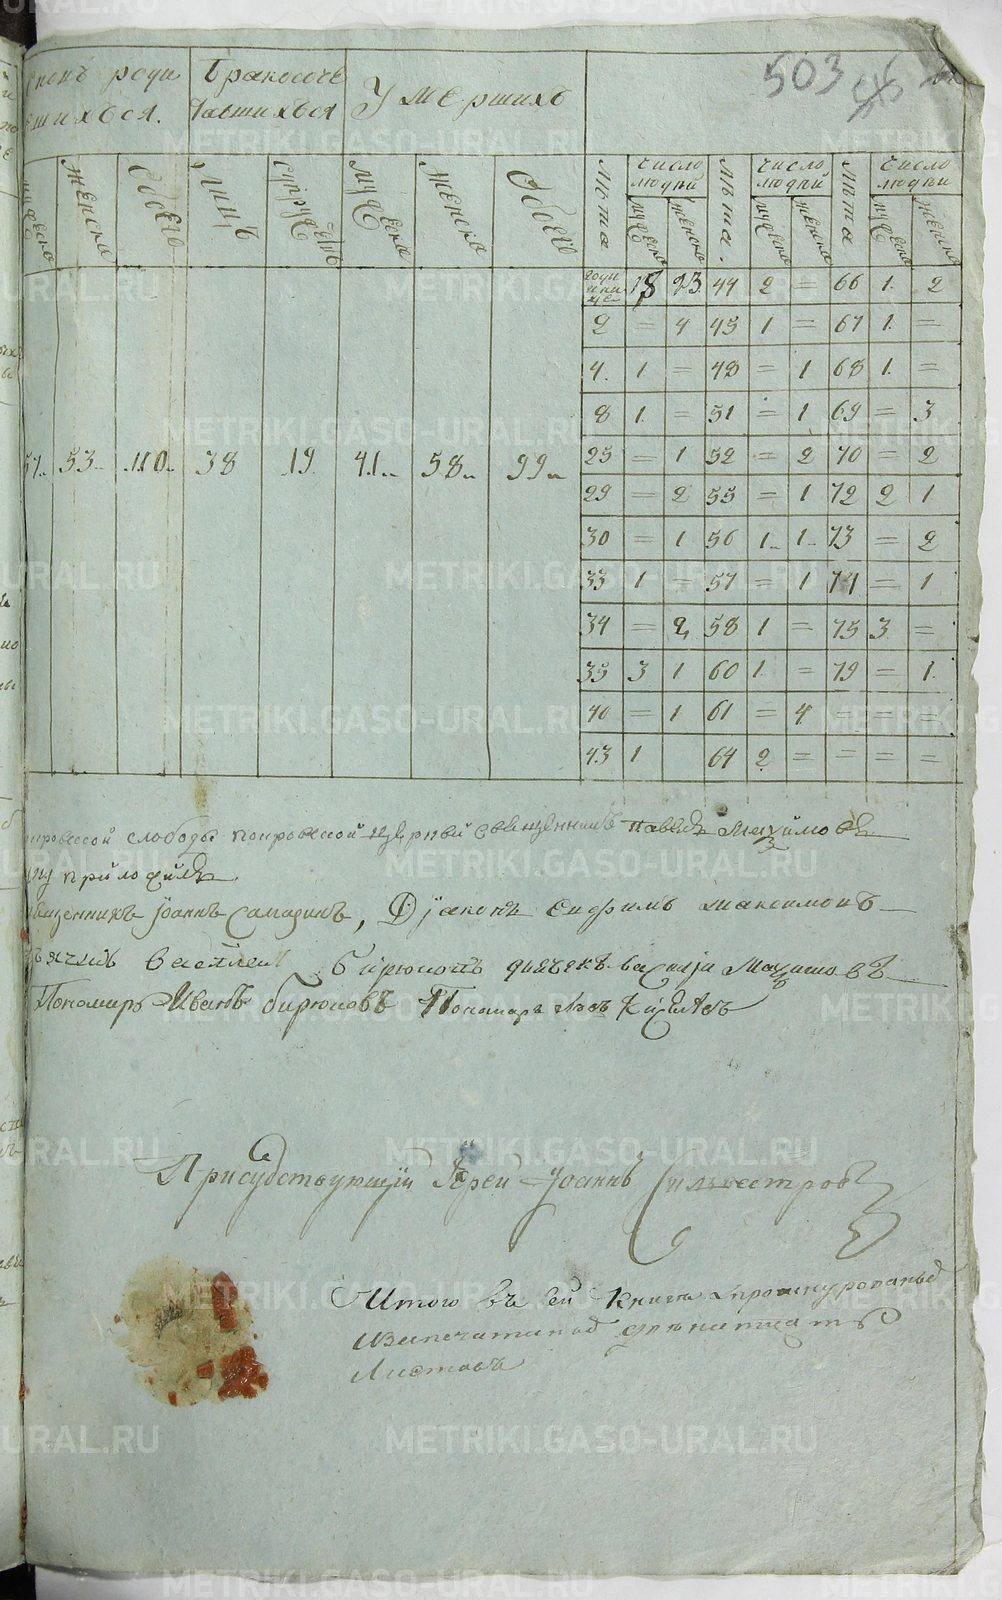 503
роди Бракосоче Умершихъ
шихъся. тавшихъся
Женска Обоего Лицъ супружествъ мужеска Женска Обоего
Лѣта Число людей Лѣта. Число людей Лѣта Число людей
мужеска женска мужеска женска мужеска женска
18 23 44 2 = 66 1. 2
2 = 4 45 1 = 67 1. =
4. 1 = 48 = 1 68 1. =
8 1. = 51 = 1 69 = 3
57.. 53.. .110.. 38 .19. 41.. 58.. 99..
25 = 1 52 = 2 70 = 2
29 = 2 55 = 1 72 2 1
30 = 1 56 1.. 1.. 73 = 2
33 1 = 57 = 1 74 = 1
34 = 2 58 1 = 75 3 =
35 3 1 60 1. = 79 = 1.
40 = 1 61 = 4 = = =
43 1 64 2 = = = =
слободы покровской церкви священникъ Павелъ
приложилъ
священникъ Іоаннъ Самаринъ, Діаконъ Ефимъ максимовъ
Василей Бирюковъ дьячекъ василіи
Пономарь Иванъ бирюковъ Пономарь Левъ Киселевъ
Присудствующій Іерей Іоаннъ Сильвестровъ
Итого въ сей книге прошнурованыхъ
листовъ
METRIKI.GASO-URAL.RU